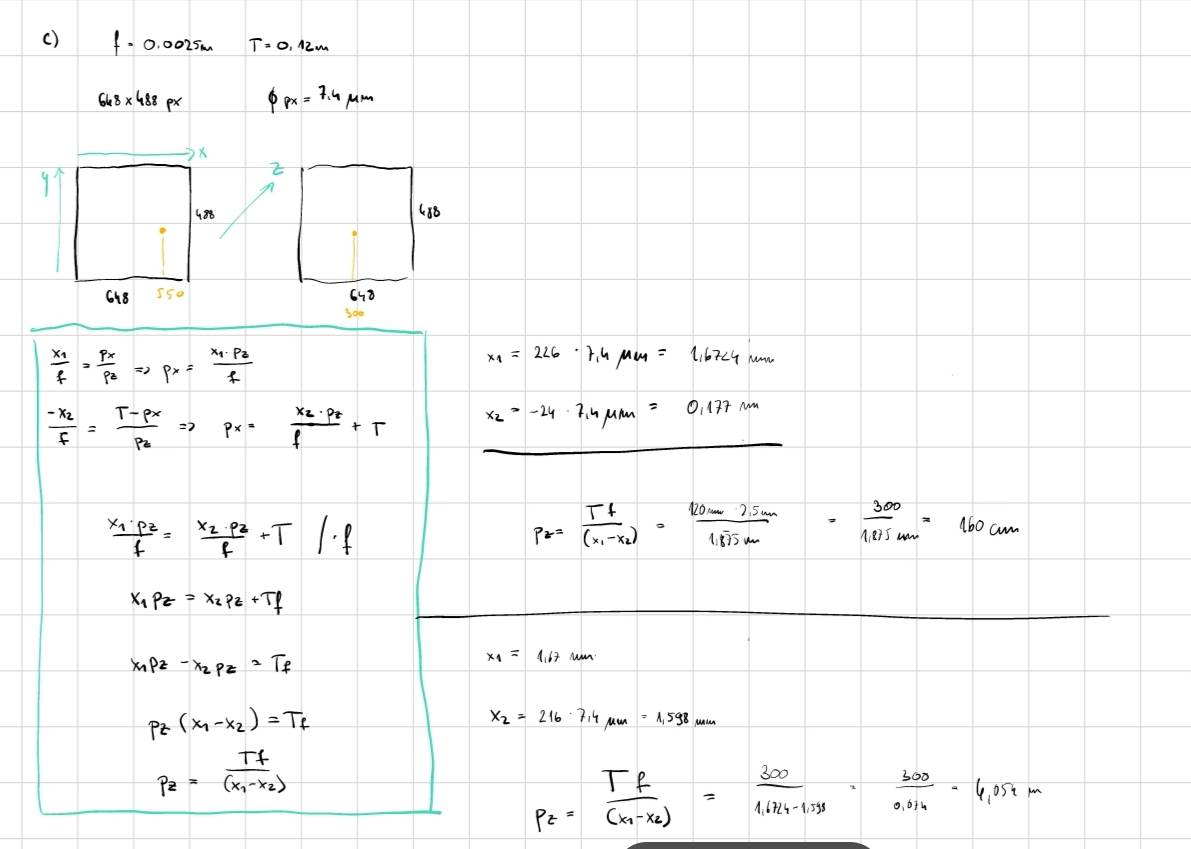 c) f = 0.0025m T = 0,12m
648 x 488 px ϕ px = 7,4 μm
x
y
z
488
488
648 550
648
300
x1/f = px/pz => px = x1·pz/f
-x2/f = T-px/pz => px = x2·pz/f + T
x1·pz/f = x2·pz/f + T /·f
x1 pz = x2 pz + Tf
x1 pz - x2 pz = Tf
pz (x1 - x2) = Tf
pz = Tf/(x1-x2)
x1 = 226 · 7,4 μm = 1,6724 mm
x2 = -24 · 7,4 μm = 0,177 mm
pz = Tf/(x1-x2) = 120 mm · 2,5 mm/1,875 mm = 300/1,875 mm = 160 cm
x1 = 1,67 mm
x2 = 216 · 7,4 μm = 1,598 mm
pz = Tf/(x1-x2) = 300/1,6724-1,598 = 300/0,074 = 4,054 m